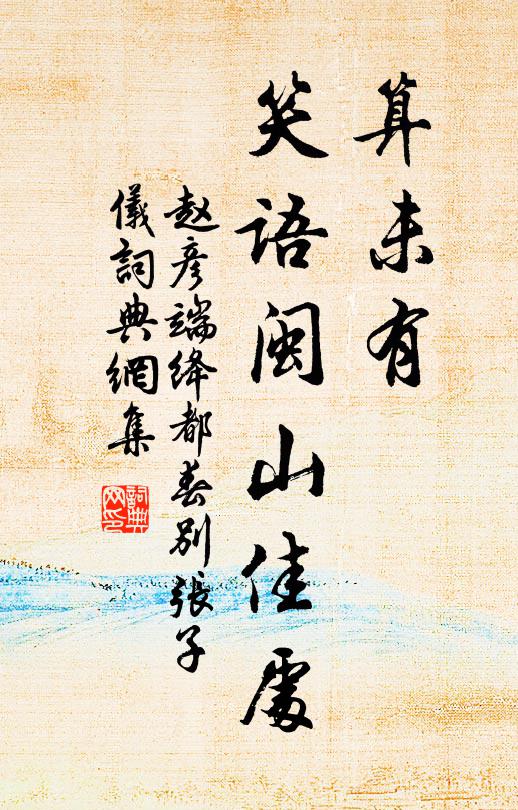 算未有
笑語闽山佳處
赵彦端绛都春别張子
儀詞典網集
詞典网印